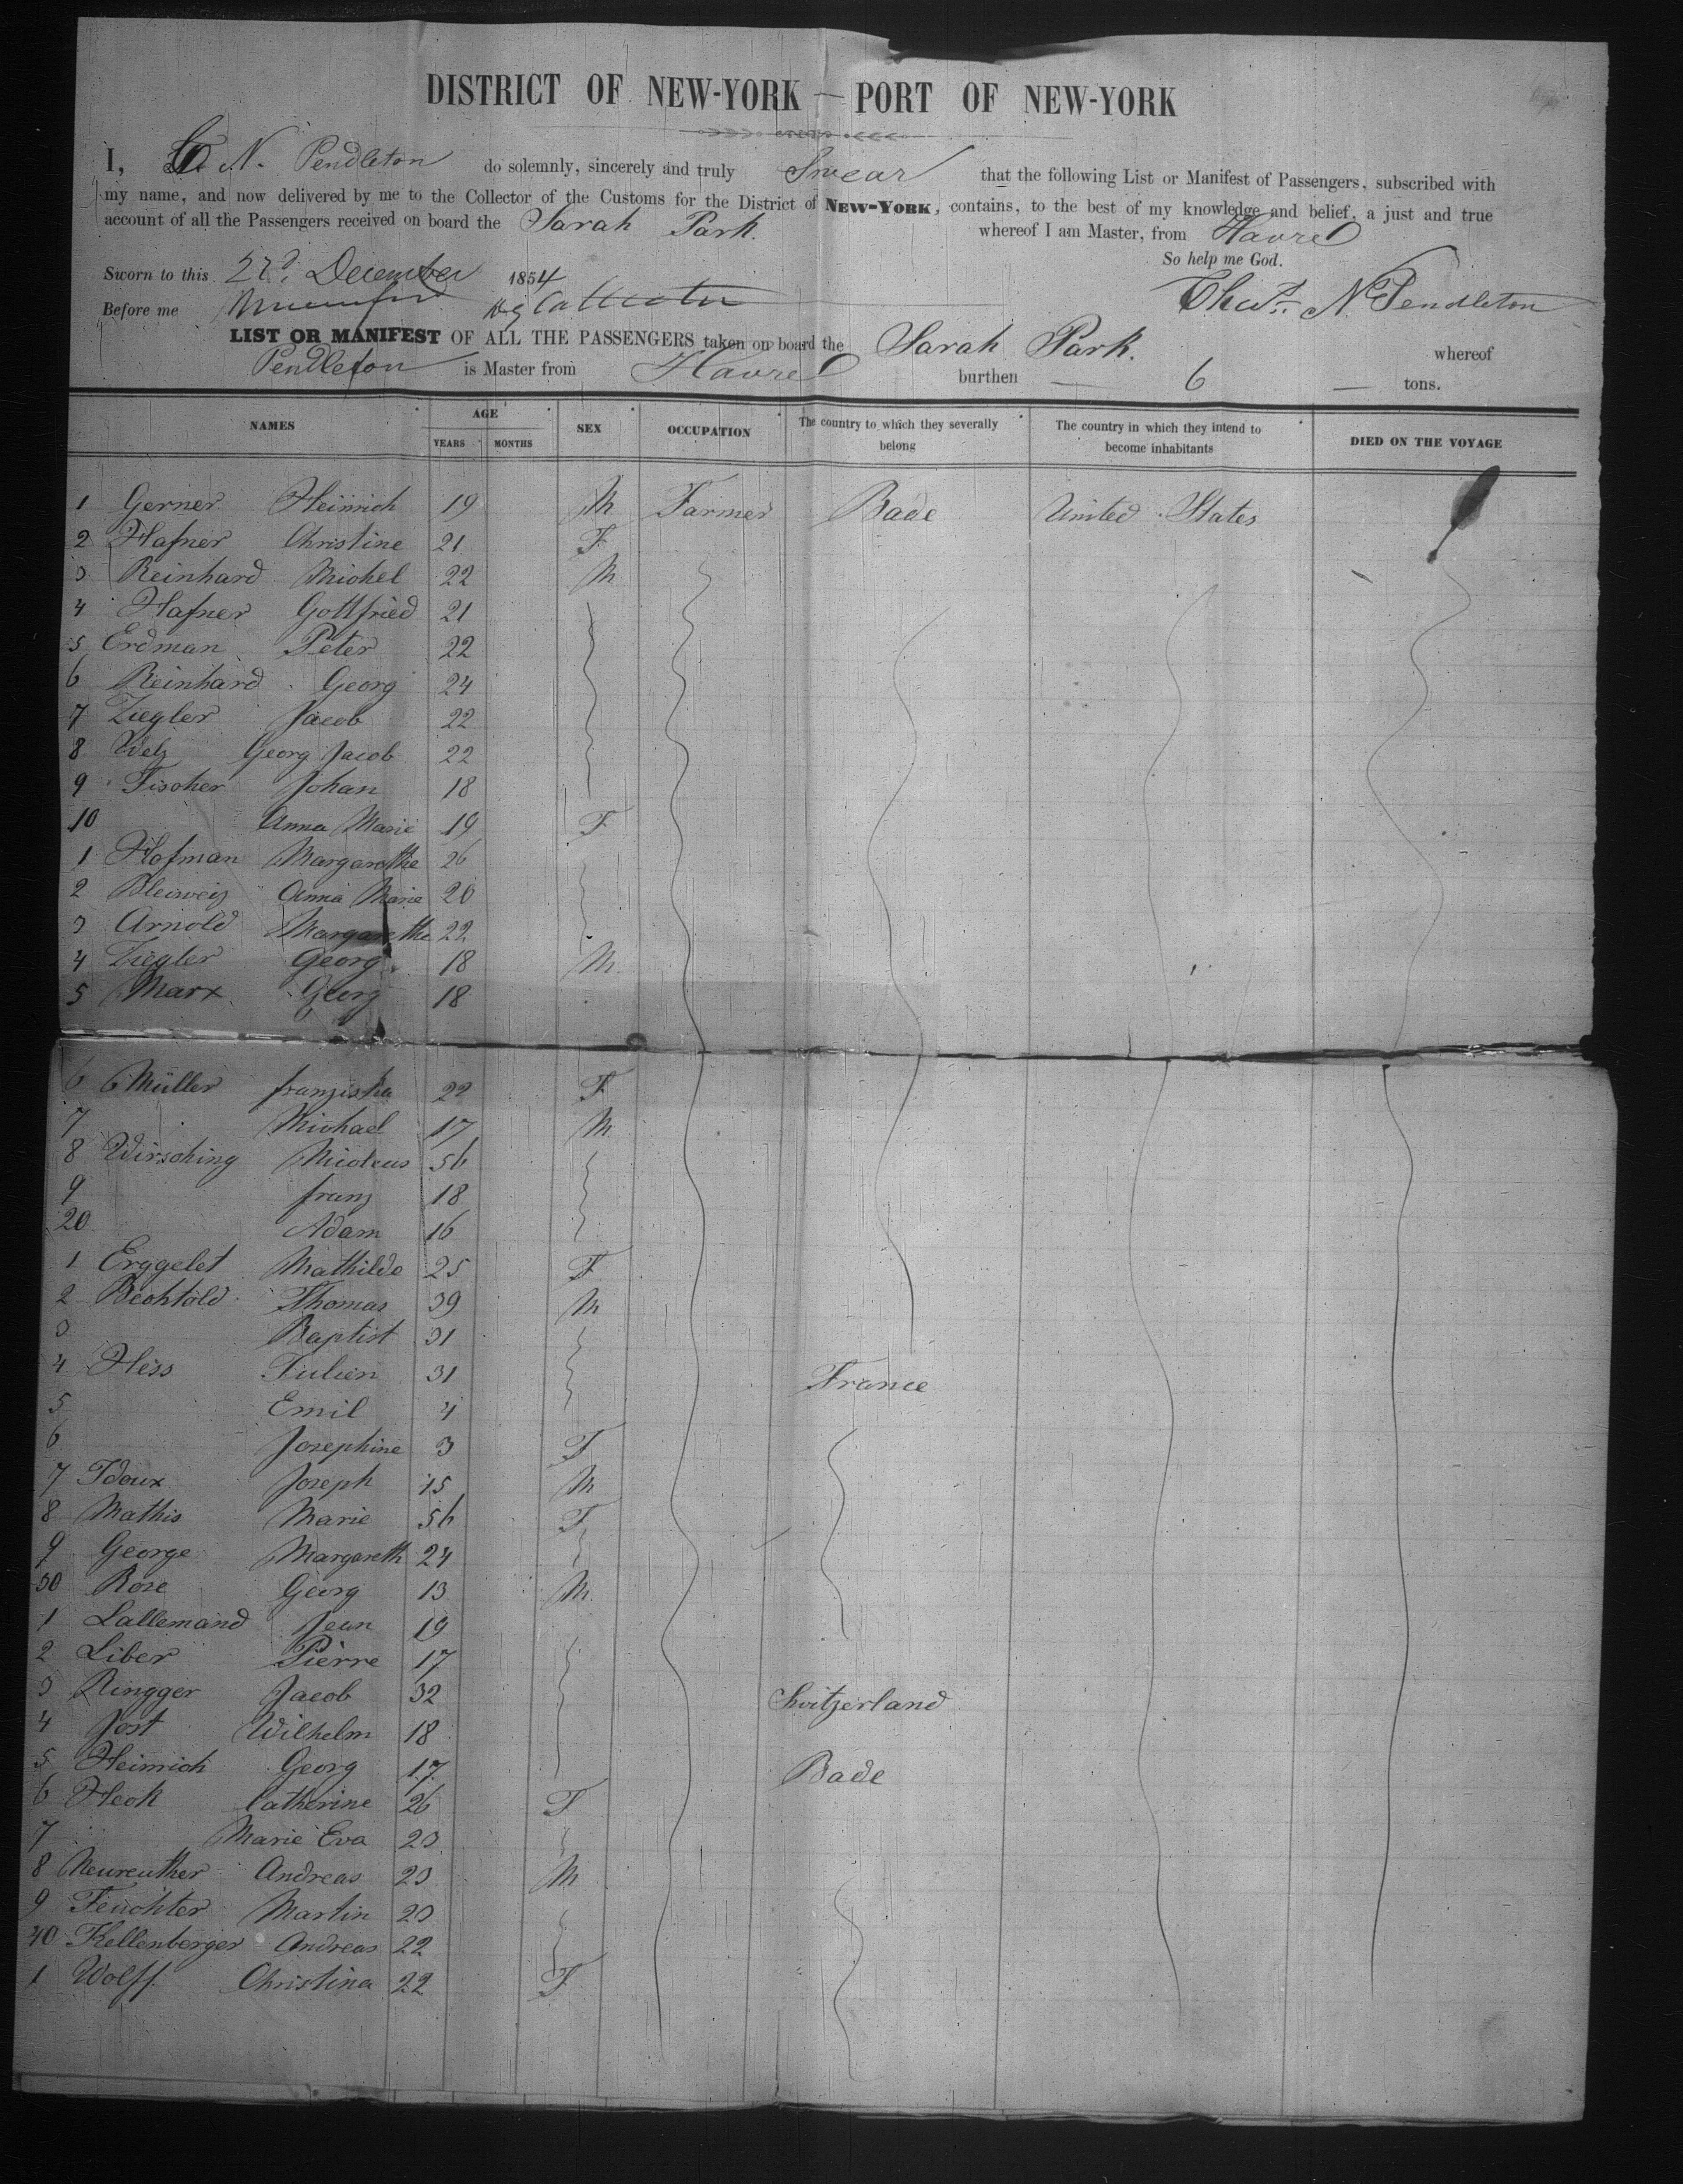 DISTRICT OF NEW-YORK — PORT OF NEW-YORK
I, C. N. Pendleton do solemnly, sincerely and truly Swear that the following List or Manifest of Passengers, subscribed with
my name, and now delivered by me to the Collector of the Customs for the District of NEW-YORK, contains, to the best of my knowledge and belief, a just and true
account of all the Passengers received on board the Sarah Park. whereof I am Master, from Havre
So help me God.
Sworn to this 27d. December 1854
Chas. N. Pendleton
Before me
LIST OR MANIFEST OF ALL THE PASSENGERS taken on board the Sarah Park. whereof
Pendleton is Master from Havre burthen — 6 — tons.
NAMES AGE YEARS MONTHS SEX OCCUPATION The country to which they severally belong The country in which they intend to become inhabitants DIED ON THE VOYAGE
1 Gerner Heinrich 19 M Farmer Bade United States
2 Hafner Christine 21 F
3 Reinhard Michel 22 M
4 Hafner Gottfried 21
5 Erdman Peter 22
6 Reinhard Georg 24
7 Ziegler Jacob 22
8 Welz Georg Jacob 22
9 Fischer Johan 18
10 Anna Marie 19 F
1 Hofman Margarethe 26
2 Bleiweiz Anna Marie 20
3 Arnold Margarethe 22
4 Ziegler Georg 18 M
5 Marx Georg 18
6 Müller franziska 22 F
7 Michael 17 M
8 Wirsching Nicolaus 56
9 franz 18
20 Adam 16
1 Erggelet Mathilde 25 F
2 Bechtold Thomas 39 M
3 Baptist 31
4 Hess Julien 31 France
5 Emil 4
6 Josephine 3 F
7 Idoux Joseph 15 M
8 Mathis Marie 56 F
9 George Margareth 24
30 Rose Georg 13 M
1 Lallemand Jean 19
2 Liber Pierre 17
3 Ringger Jacob 32 Switzerland
4 Jost Wilhelm 18
5 Heinrich Georg 17 Bade
6 Heck Catherine 26 F
7 Marie Eva 23
8 Neureuther Andreas 23 M
9 Feuchter Martin 23
40 Kellenberger Andreas 22
1 Wolff Christina 22 F